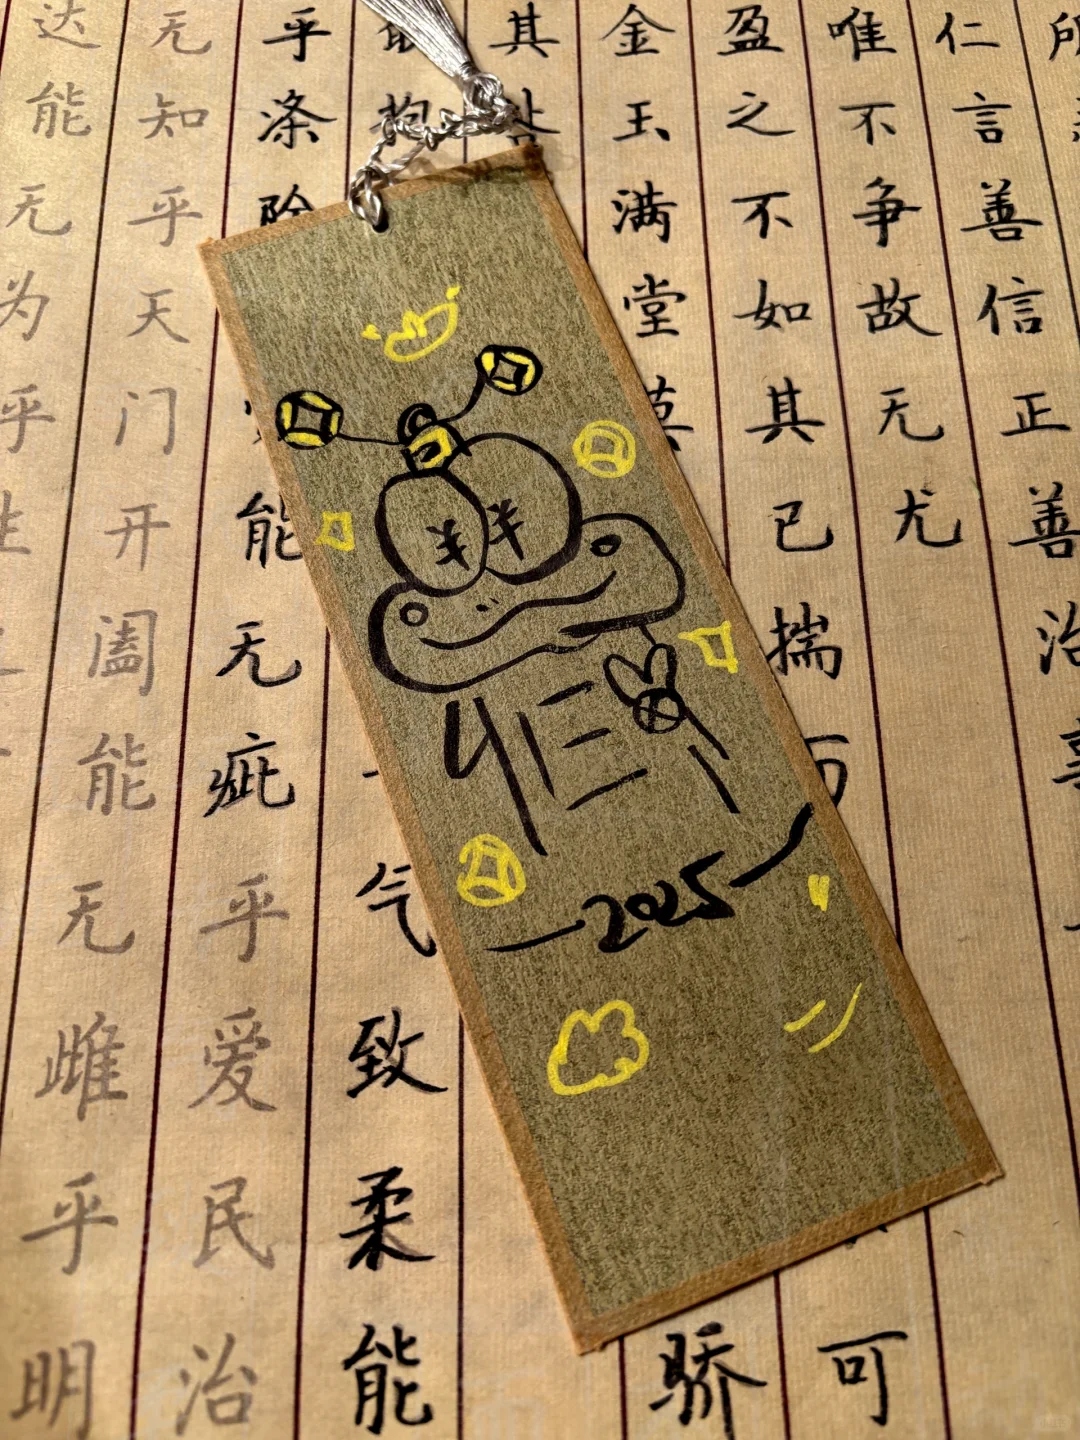 所
仁言善信正善治事
唯不争故无尤
盈之不如其已揣而可
金玉满堂莫骄
其咎
抱气致柔能
乎涤除能无疵乎爱民治
无知乎天门开阖能无雌乎明
达能无为乎生
¥ ¥
2025